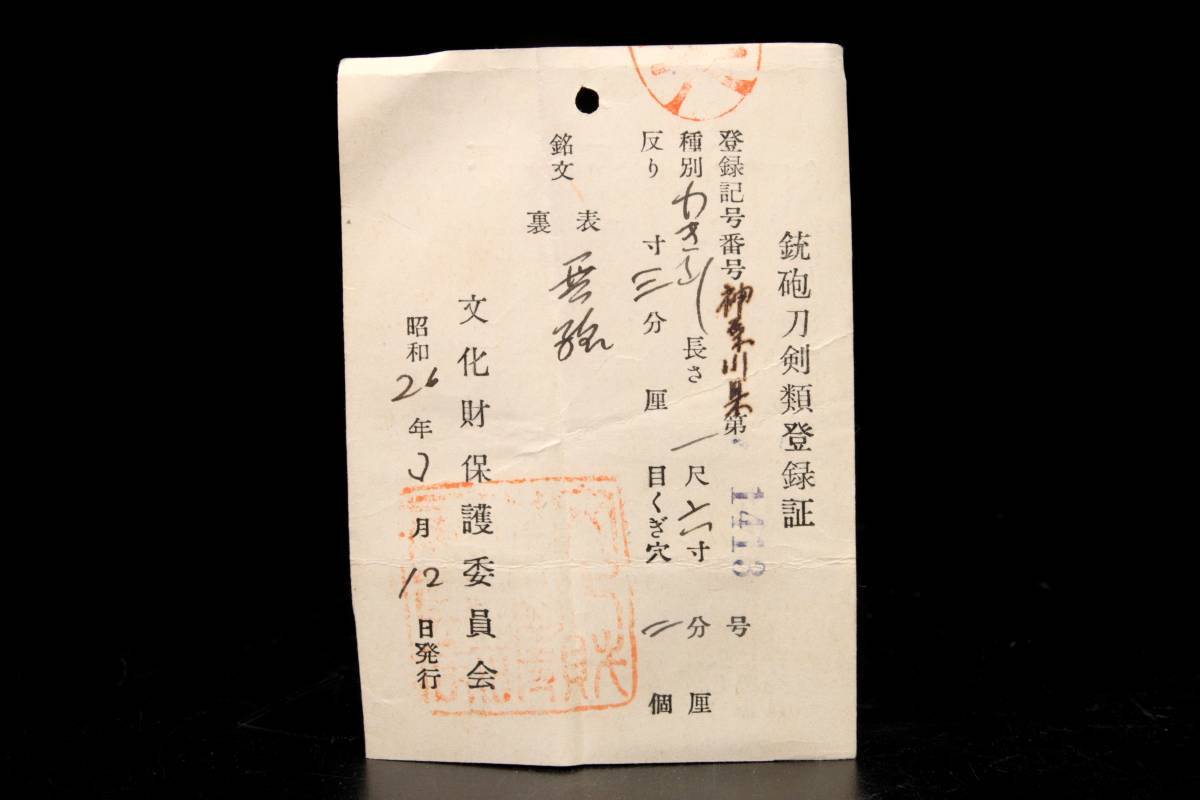 銃砲刀剣類登録証
登録記号番号神奈川県第1413号
種別わきざし長さ一尺六寸分厘
反り寸三分厘目くぎ穴二個
銘文
表無銘
裏
文化財保護委員会
昭和26年3月12日発行